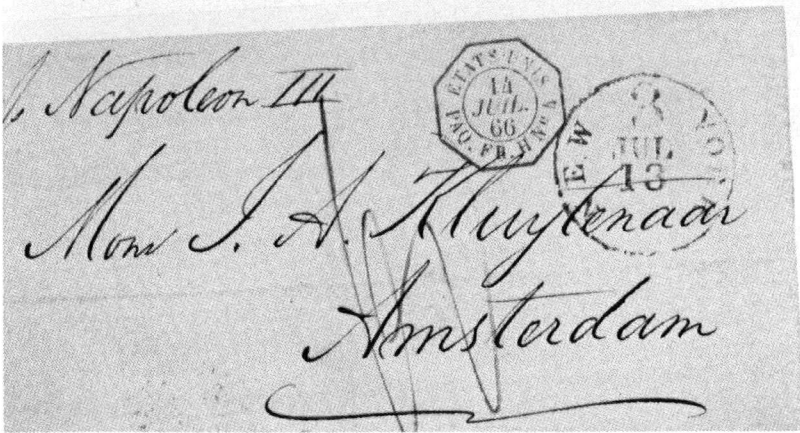 p. Napoleon III
ETATS-UNIS
14
JUIL.
66
PAQ. FR. H No 4
NEW YORK
3
JUL
13
Mons J. A. Kluytenaar
Amsterdam